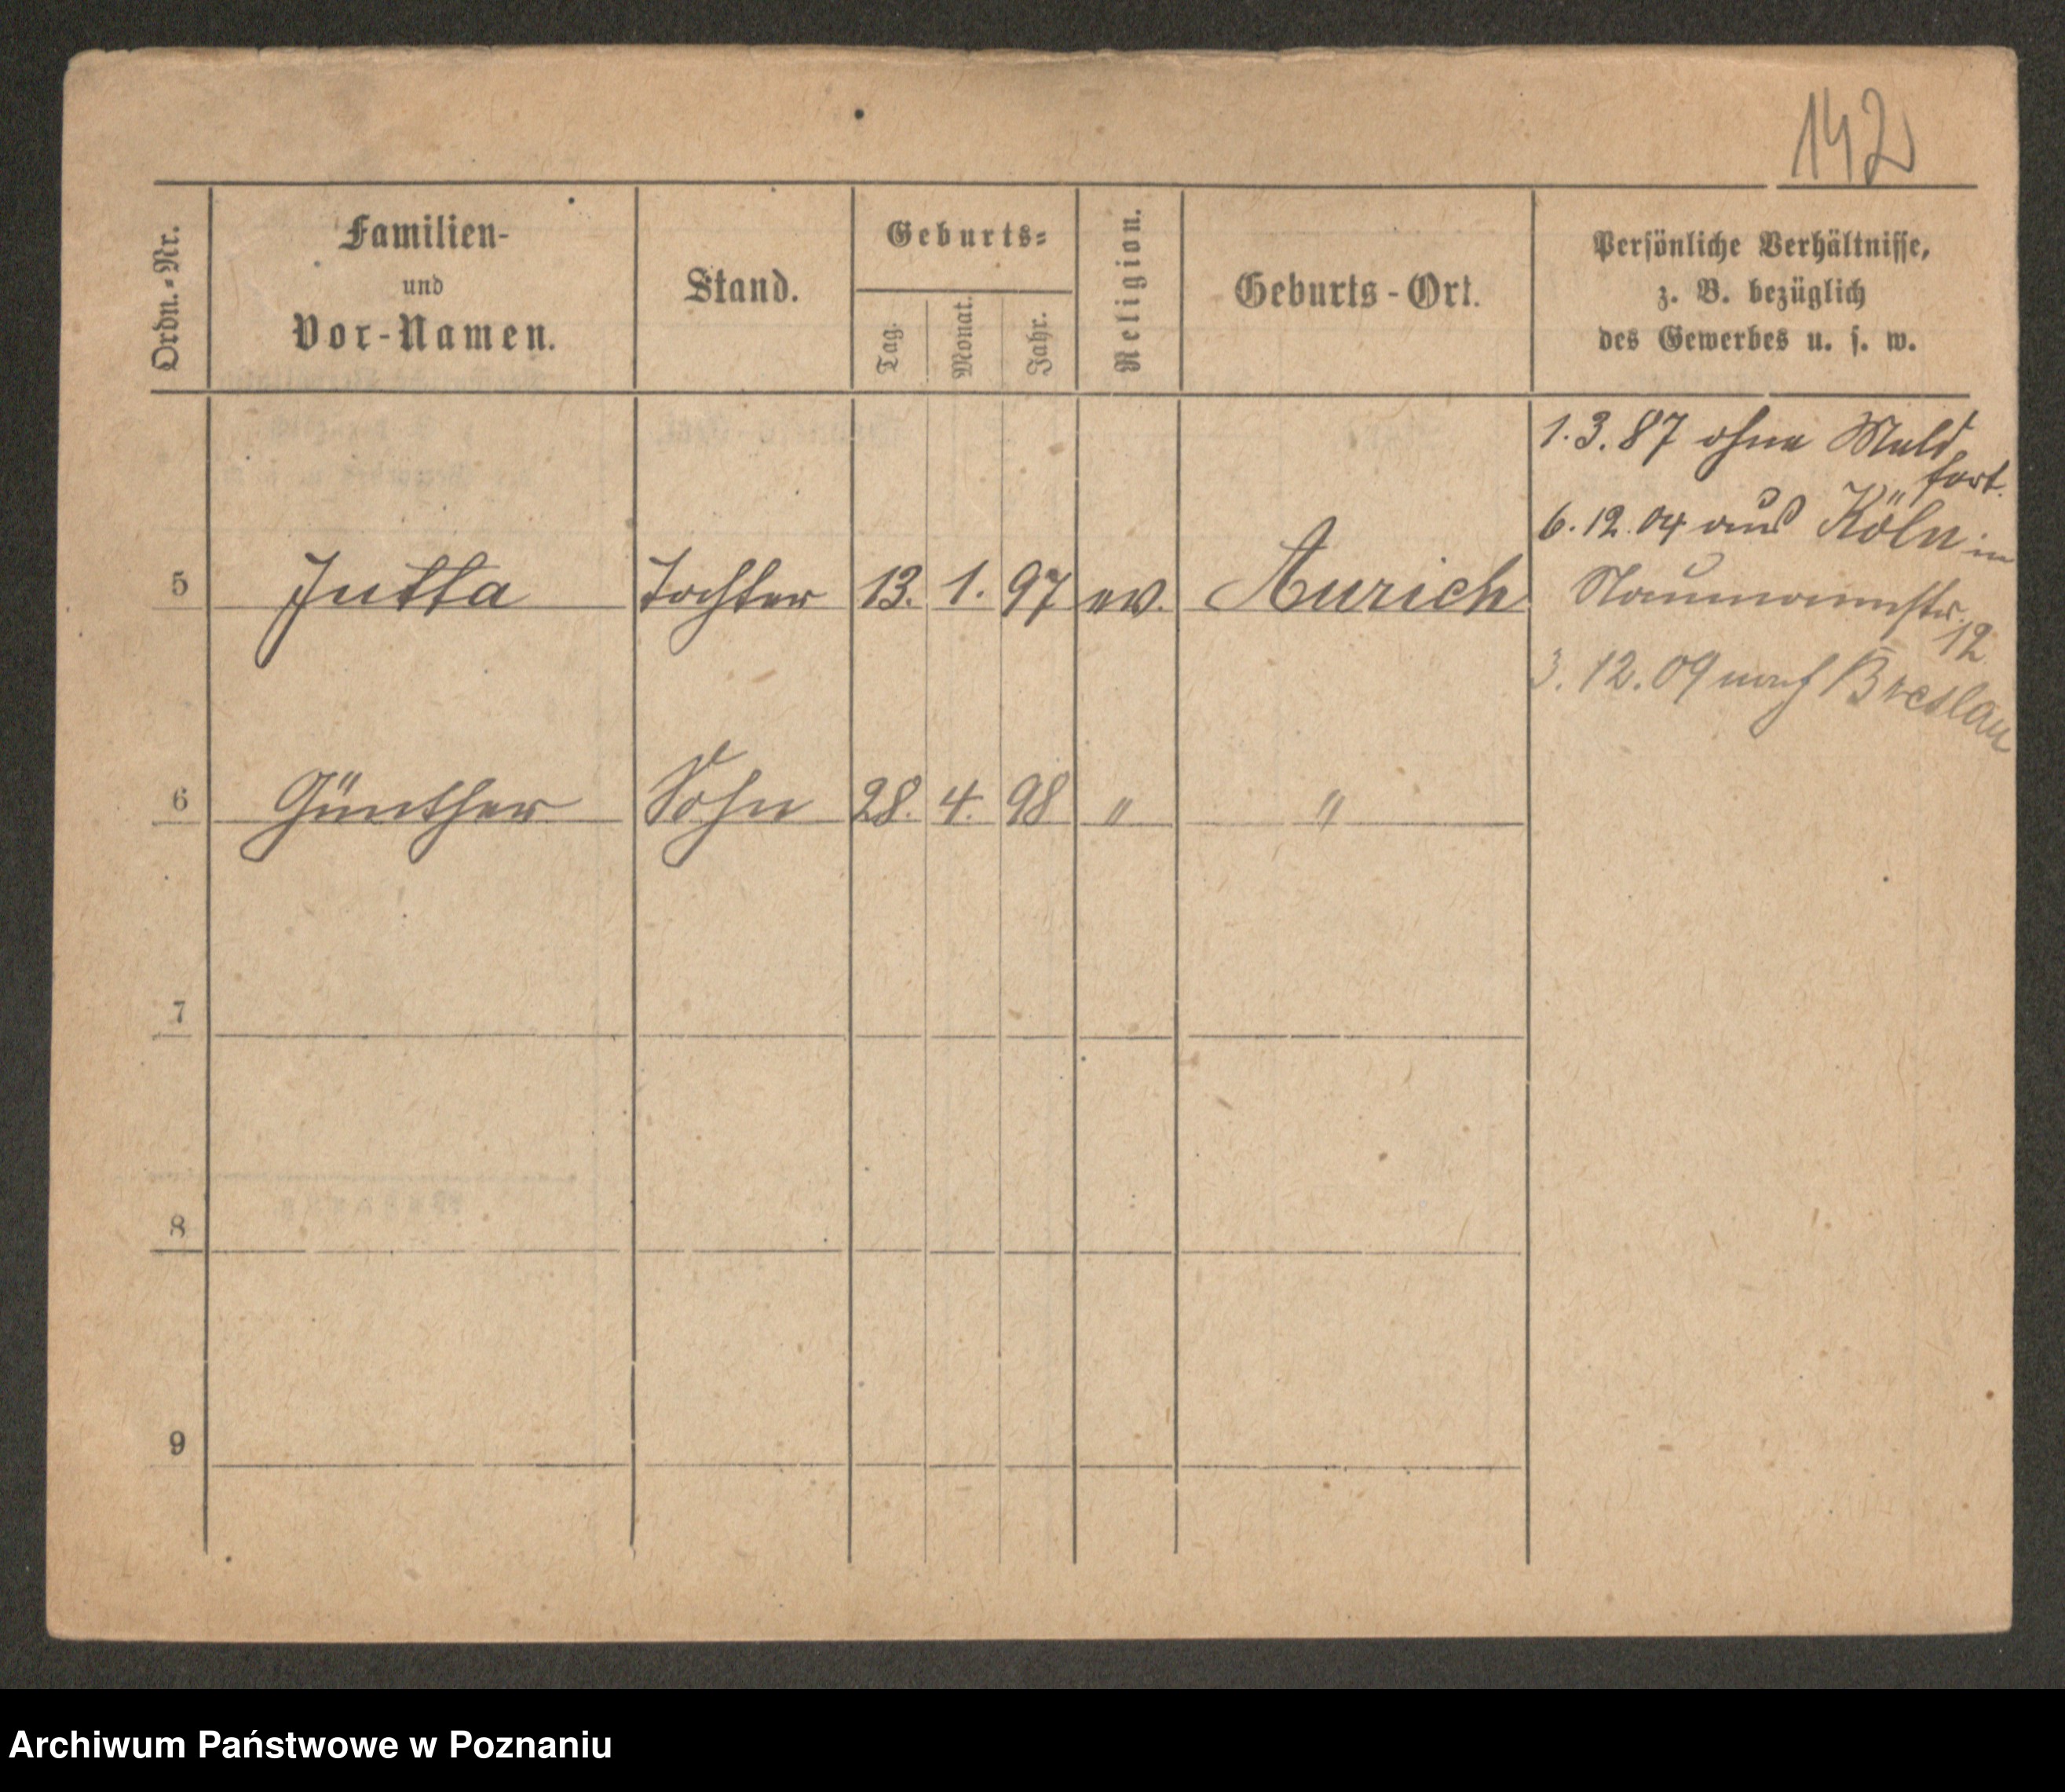 142
Ordn.-Nr.
Familien-
und
Vor-Namen.
Stand.
Geburts-
Tag.
Monat.
Jahr.
Religion.
Geburts-Ort.
Persönliche Verhältnisse,
z. B. bezüglich
des Gewerbes u. s. w.
1.3.87 ohne Meld
fort.
6.12.04 aus Köln in
Naumannstr.
12
3.12.09 nach Breslau
5 Jutta Tochter 13. 1. 97 ev. Aurich
6 Günther Sohn 28. 4. 98 " "
7
8
9
Archiwum Państwowe w Poznaniu